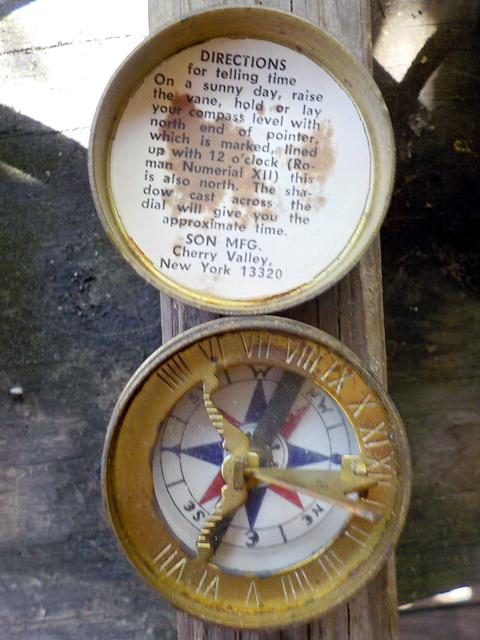 DIRECTIONS
for telling time
On a sunny day, raise
the vane, hold or lay
your compass level with
north end of pointer,
which is marked, lined
up with 12 o'clock (Ro-
man Numerial XII) this
is also north. The sha-
dow cast across the
dial will give you the
approximate time.
SON MFG.
Cherry Valley,
New York 13320
IIII VI VII VIII IX X XI XII
W
NW
NE
E
SE
I II III IIII V VI VII